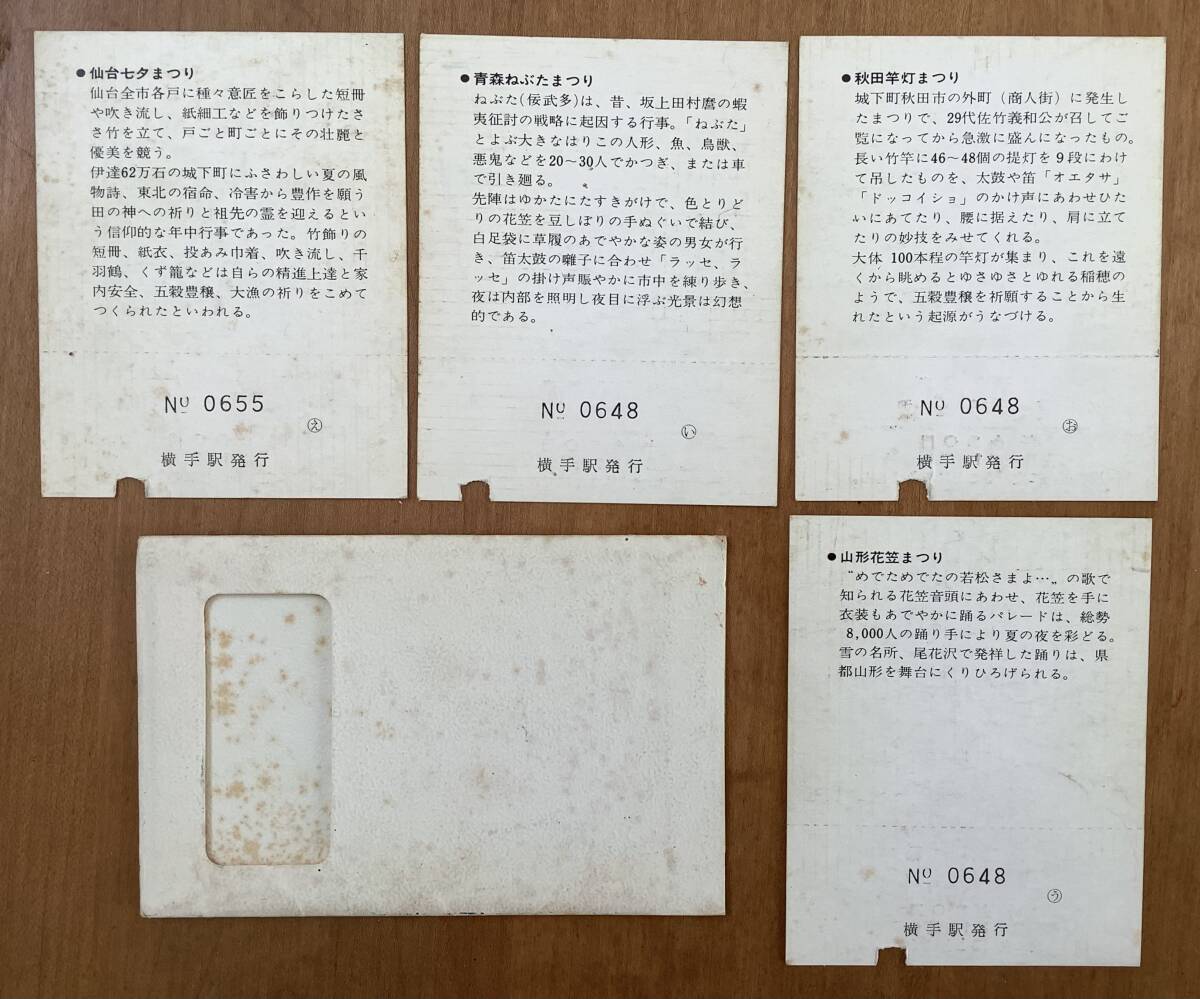 ●仙台七夕まつり
仙台全市各戸に種々意匠をこらした短冊
や吹き流し、紙細工などを飾りつけたさ
さ竹を立て、戸ごと町ごとにその壮麗と
優美を競う。
伊達62万石の城下町にふさわしい夏の風
物詩、東北の宿命、冷害から豊作を願う
田の神への祈りと祖先の霊を迎えるとい
う信仰的な年中行事であった。竹飾りの
短冊、紙衣、投あみ巾着、吹き流し、千
羽鶴、くず籠などは自らの精進上達と家
内安全、五穀豊穣、大漁の祈りをこめて
つくられたといわれる。
№ 0655
え
横手駅発行
●青森ねぶたまつり
ねぶた(佞武多)は、昔、坂上田村麿の蝦
夷征討の戦略に起因する行事。「ねぶた」
とよぶ大きなはりこの人形、魚、鳥獣、
悪鬼などを20〜30人でかつぎ、または車
で引き廻る。
先陣はゆかたにたすきがけで、色とりど
りの花笠を豆しぼりの手ぬぐいで結び、
白足袋に草履のあでやかな姿の男女が行
き、笛太鼓の囃子に合わせ「ラッセ、ラ
ッセ」の掛け声賑やかに市中を練り歩き、
夜は内部を照明し夜目に浮ぶ光景は幻想
的である。
№ 0648
い
横手駅発行
●秋田竿灯まつり
城下町秋田市の外町（商人街）に発生し
たまつりで、29代佐竹義和公が召してご
覧になってから急激に盛んになったもの。
長い竹竿に46〜48個の提灯を9段にわけ
て吊したものを、太鼓や笛「オエタサ」
「ドッコイショ」のかけ声にあわせひた
いにあてたり、腰に据えたり、肩に立て
たりの妙技をみせてくれる。
大体 100本程の竿灯が集まり、これを遠
くから眺めるとゆさゆさとゆれる稲穂の
ようで、五穀豊穣を祈願することから生
れたという起源がうなづける。
№ 0648
お
横手駅発行
●山形花笠まつり
〝めでためでたの若松さまよ…〟の歌で
知られる花笠音頭にあわせ、花笠を手に
衣装もあでやかに踊るパレードは、総勢
8,000人の踊り手により夏の夜を彩どる。
雪の名所、尾花沢で発祥した踊りは、県
都山形を舞台にくりひろげられる。
№ 0648
う
横手駅発行